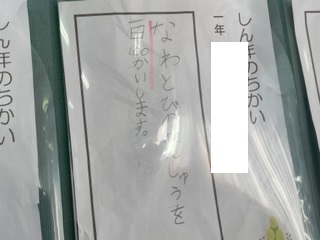 しん年のちかい
一年
なわとびれんしゅうを
百かいします。
しん年のちかい